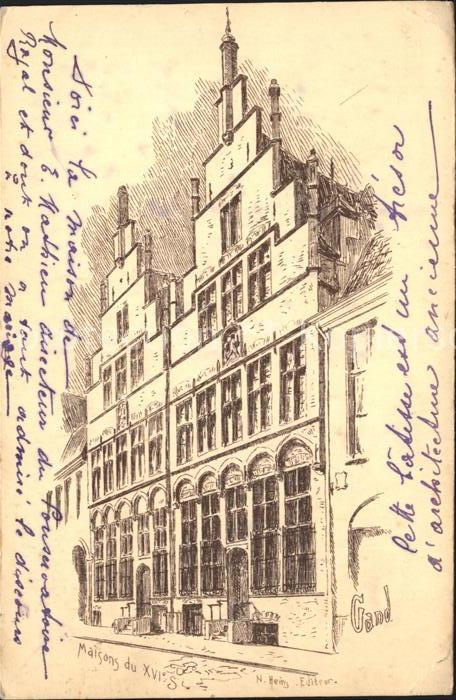 Voici la maison de
Monsieur E. Mathieu directeur du Conservatoire
Royal et dont on a tant admiré le discours
à notre mariage
Cette bâtisse est un trésor
d'architecture ancienne
Gand
Maisons du XVIe S.
N. Heins Editeur.